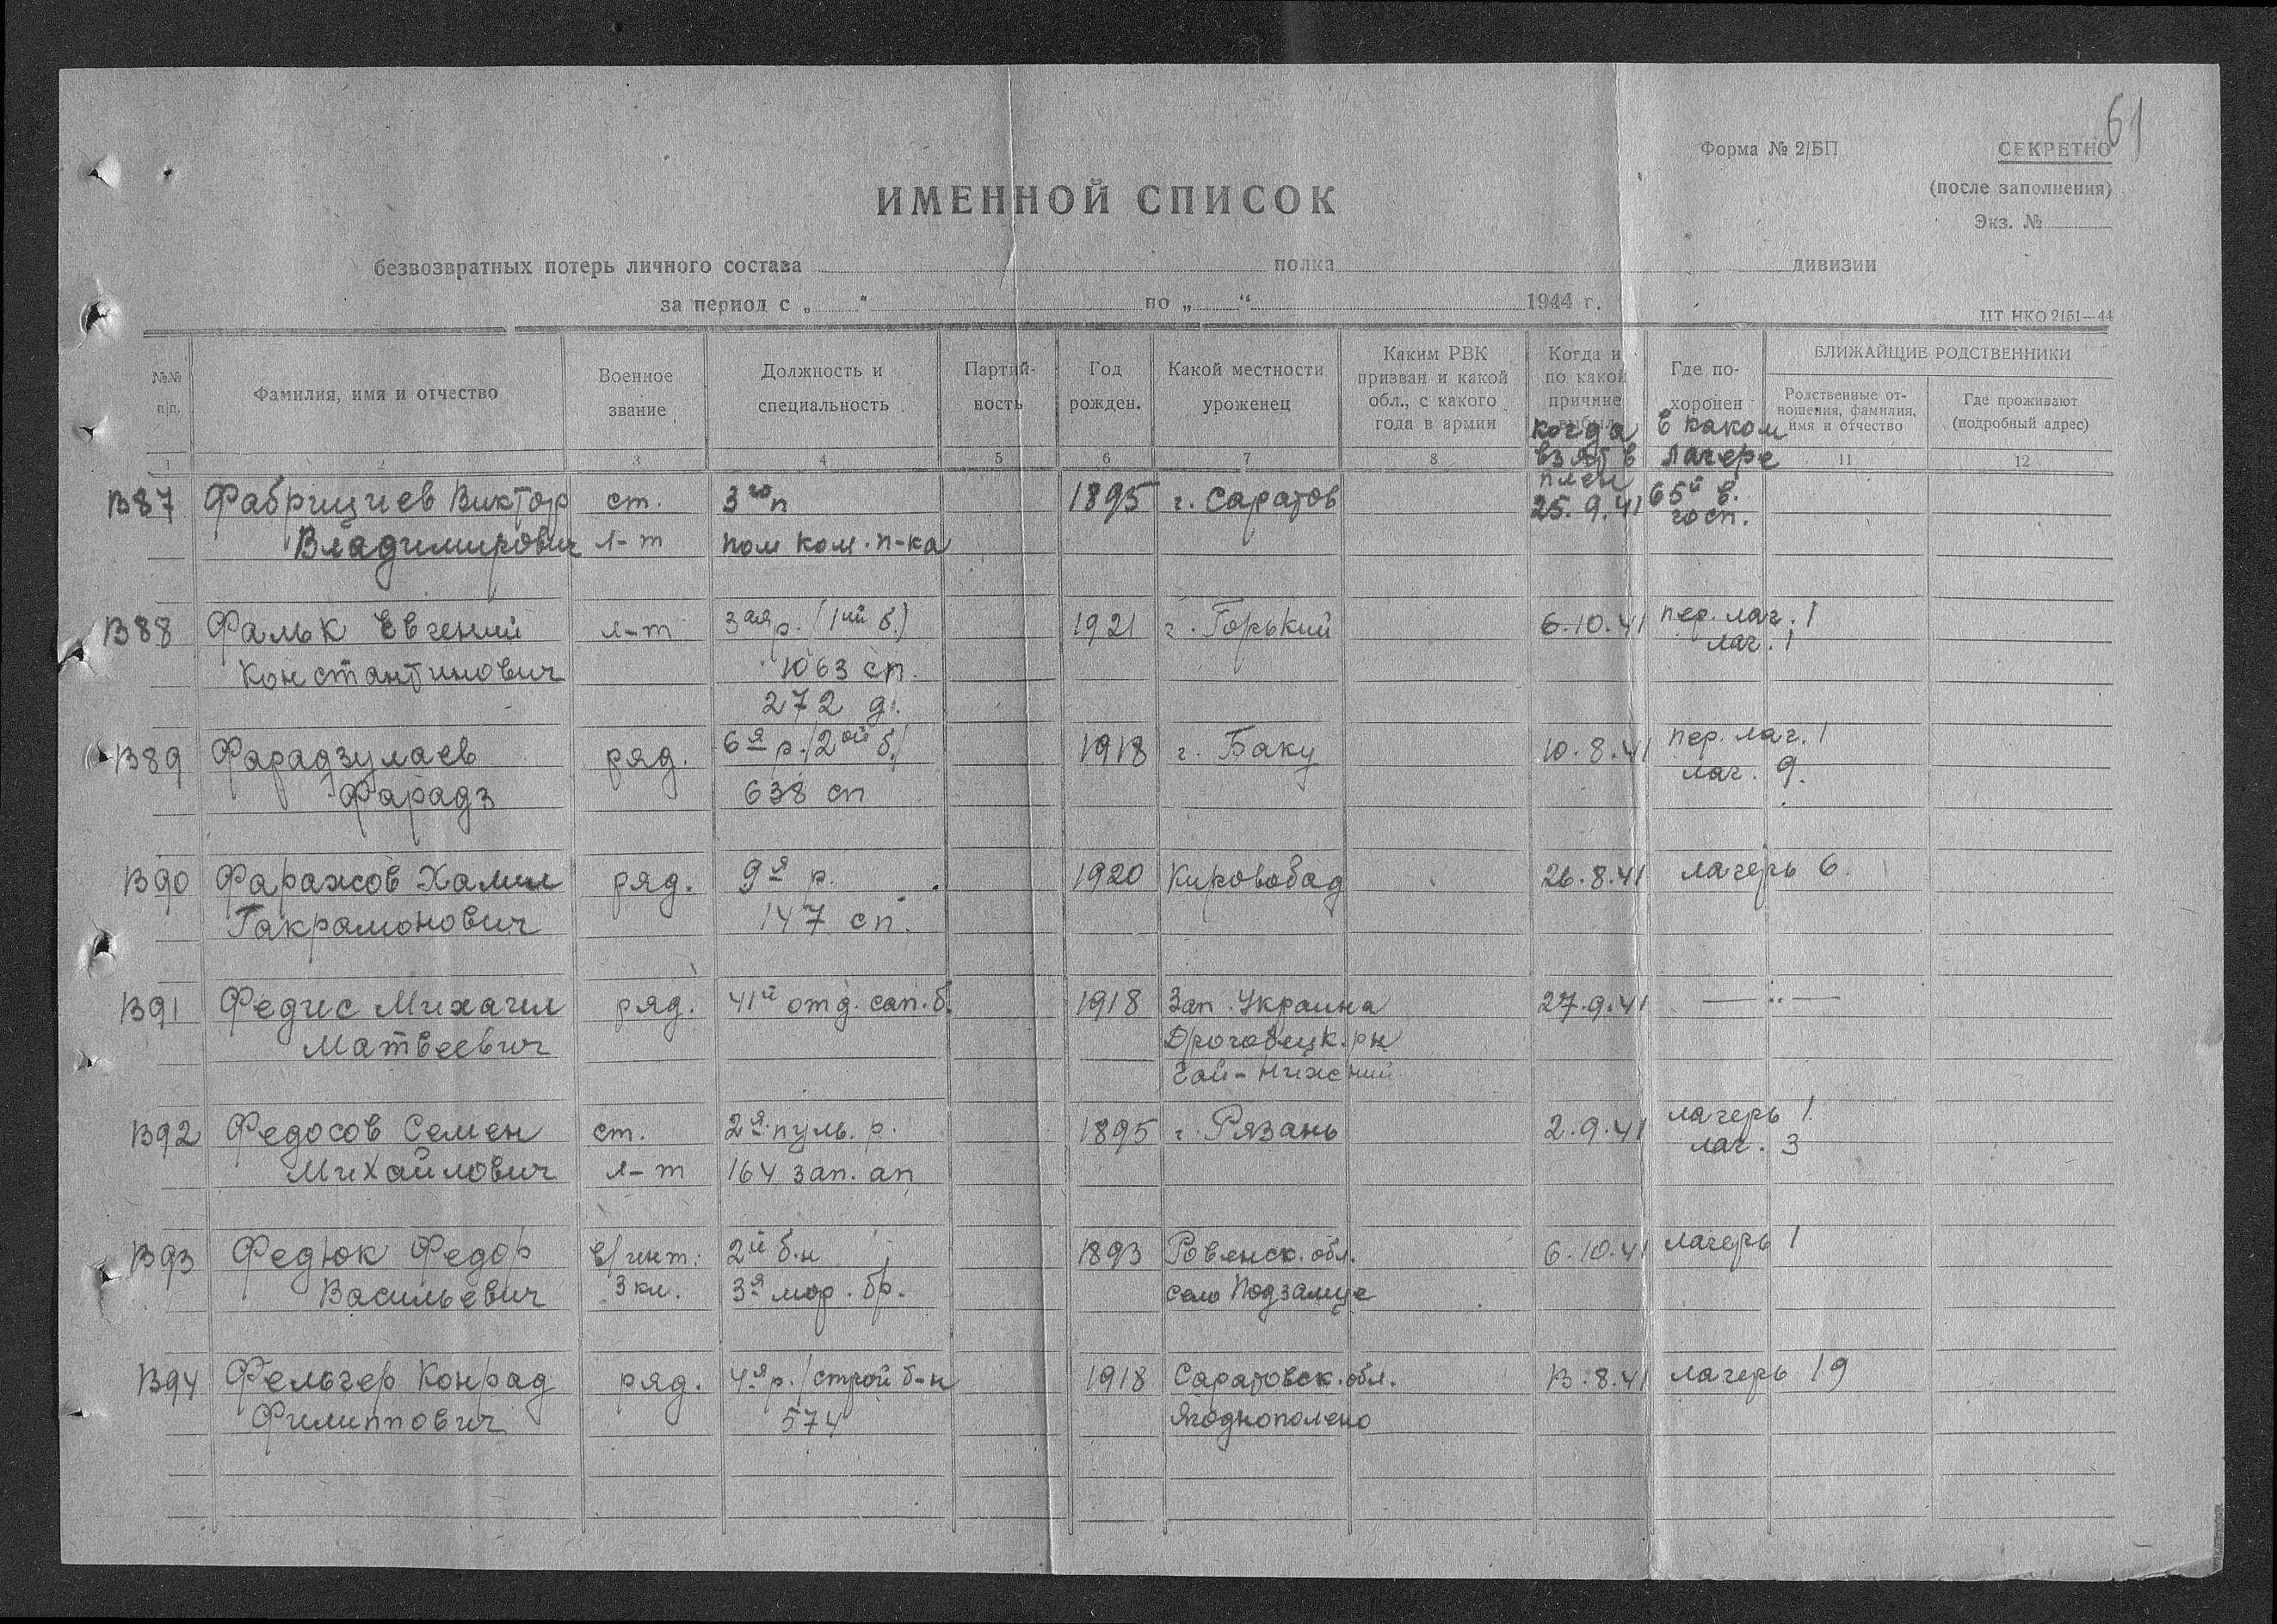 61
Форма № 2/БП
СЕКРЕТНО
(после заполнения)
Экз. №
ИМЕННОЙ СПИСОК
безвозвратных потерь личного состава полка дивизии
за период с „ “ по „ “ 1944 г.
ЦТ НКО 2151—44
№№ п/п.
Фамилия, имя и отчество
Военное звание
Должность и специальность
Партийность
Год рожден.
Какой местности уроженец
Каким РВК призван и какой обл., с какого года в армии
Когда и по какой причине
когда взят в плен
Где похоронен
в каком лагере
БЛИЖАЙЩИЕ РОДСТВЕННИКИ
Родственные отношения, фамилия, имя и отчество
Где проживают (подробный адрес)
1 2 3 4 5 6 7 8 11 12
1387 Фабрициев Виктор ст. 3го п 1895 г. Саратов 25.9.41 65й в.
госп.
Владимирович л-т пом ком. п-ка
1388 Фальк Евгений л-т 3ая р. (1ий б.) 1921 г. Горький 6.10.41 пер. лаг. 1
лаг. 1
Константинович 1063 сп.
272 д.
1389 Фарадзулаев ряд. 6я р./2ой б/ 1918 г. Баку 10.8.41 пер. лаг. 1
лаг. 9.
Фарадз 638 сп
1390 Фаражов Халил ряд. 9я р. 1920 Кировобад 26.8.41 лагерь 6.
Гакрамонович 147 сп.
1391 Федис Михаил ряд. 41й отд. сап. б. 1918 Зап. Украина 27.9.41 — ·· —
Матвеевич Дроговецк. рн
Гаи-Нижний
1392 Федосов Семен ст. 2я пуль. р. 1895 г. Рязань 2.9.41 лагерь 1
лаг. 3
Михайлович л-т 164 зап. ап
1393 Федюк Федор в/инт. 2й б-н 1893 Ровенск. обл. 6.10.41 лагерь 1
Васильевич 3 кл. 3я мор. бр. село Подзамце
1394 Фельгер Конрад ряд. 4я р./строй б-н 1918 Саратовск. обл. 13.8.41 лагерь 19
Филиппович 574 Ягоднополено